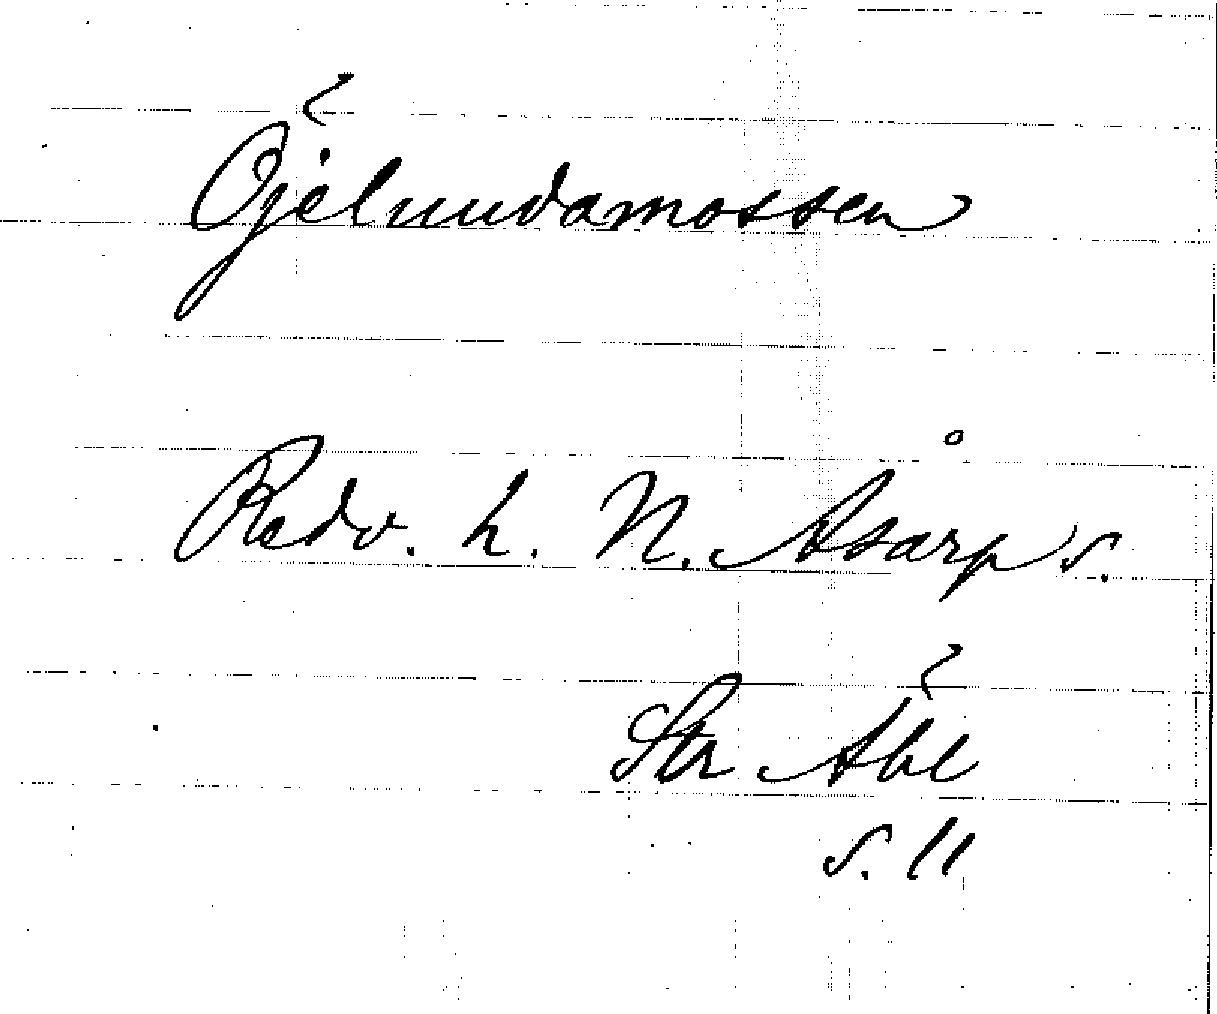 Öjelundamossen
Redv. h. N. Åsarp s.
Str Äbl
s. 11